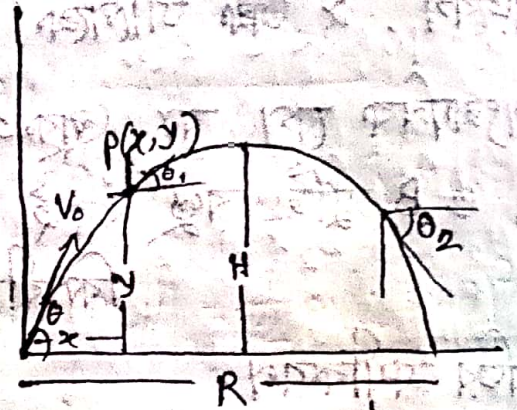 P(x,y)
θ₁
V₀
θ₂
H
y
θ
x
R